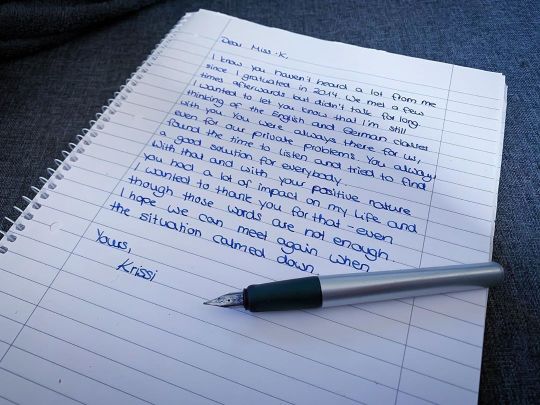 Dear Miss K,
I know you haven't heard a lot from me
since I graduated in 2014. We met a few
times afterwards but didn't talk for long.
I wanted to let you know that I'm still
thinking of the English and German classes
with you. You were always there for us,
even for our private problems. You always
found the time to listen and tried to find
a good solution for everybody.
With that and with your positive nature
you had a lot of impact on my life and
I wanted to thank you for that - even
though those words are not enough.
I hope we can meet again when
the situation calmed down.
Yours,
Krissi